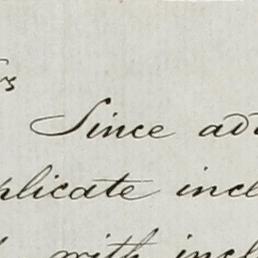 Since
plicate incl
with incl